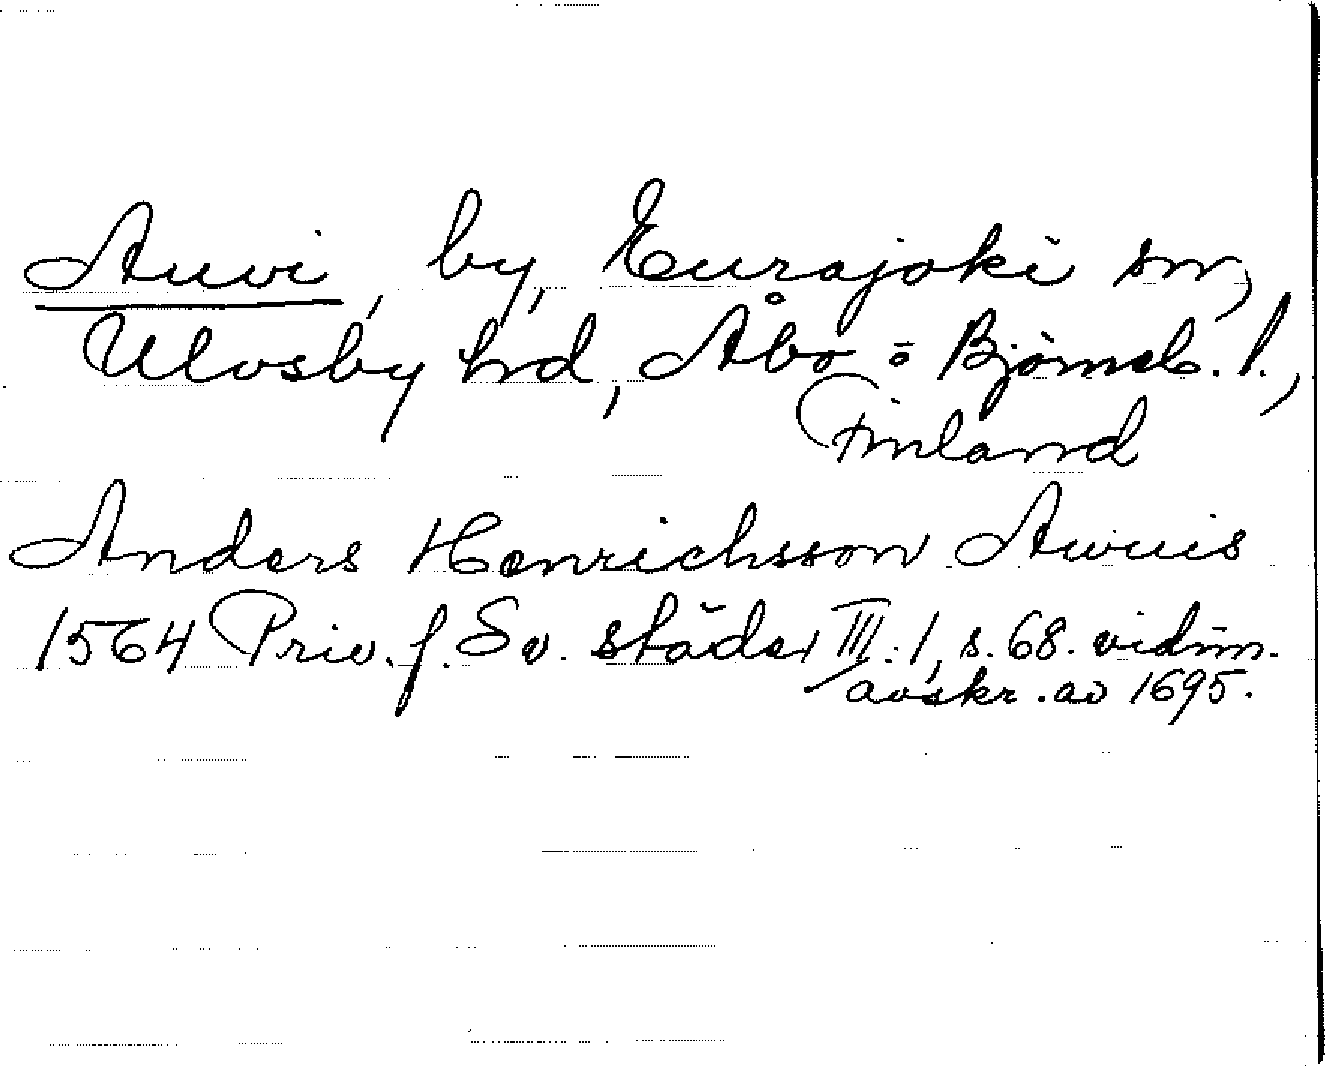 Auvi, by, Eurajoki sn,
Ulvsby hrd, Åbo o Björneb. l.,
Finland
Anders Henrichsson Awuis
1564 Priv. f. Sv. städer III:1, s. 68. vidim.
avskr. av 1695.